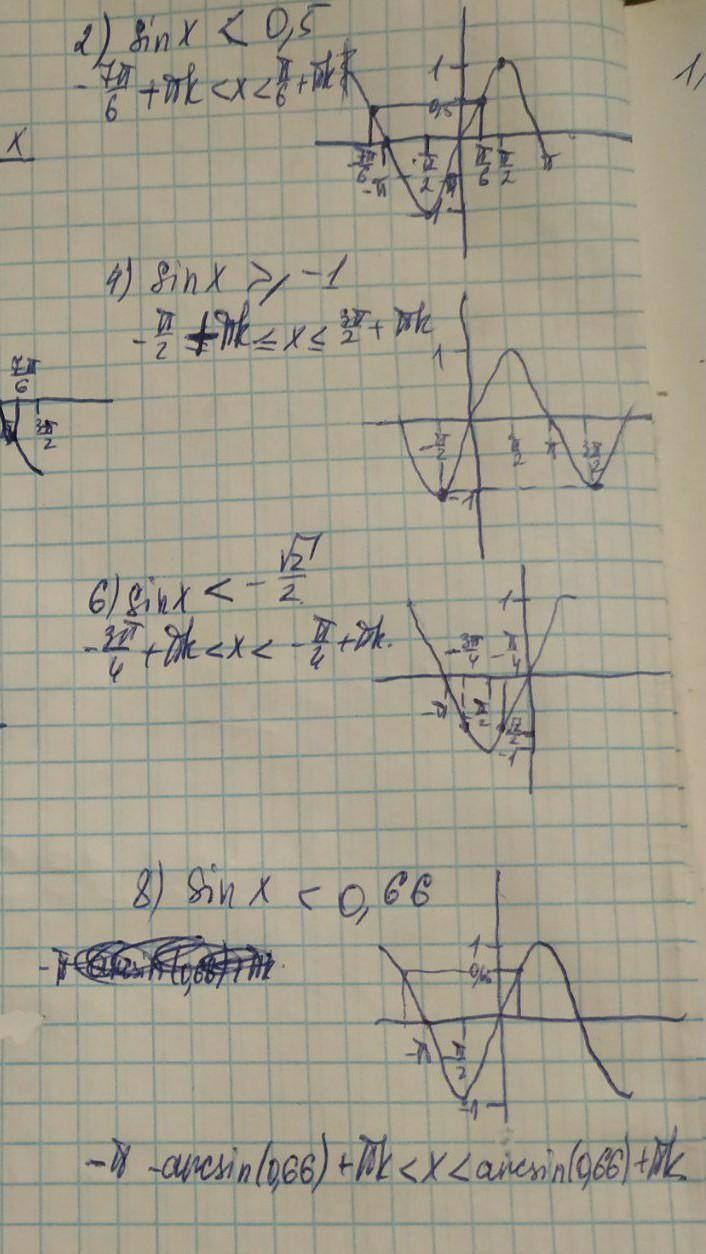 2) sin x < 0,5
-7π/6 + πk < x < π/6 + πk
1
0,5
-7π/6 -π -π/2 π/6 π/2 π
-1
1,
x
4) sin x ⩾ -1
-π/2 + πk ≤ x ≤ 3π/2 + πk
1
-π/2 π/2 π 3π/2
-1
7π/6
3π/2
6) sin x < -√2/2
-3π/4 + πk < x < -π/4 + πk.
1
-3π/4 -π/4
-π -π/2 √2/2
-1
8) sin x < 0,66
1
0,66
-π -π/2
-1
-π - arcsin(0,66) + πk < x < arcsin(0,66) + πk